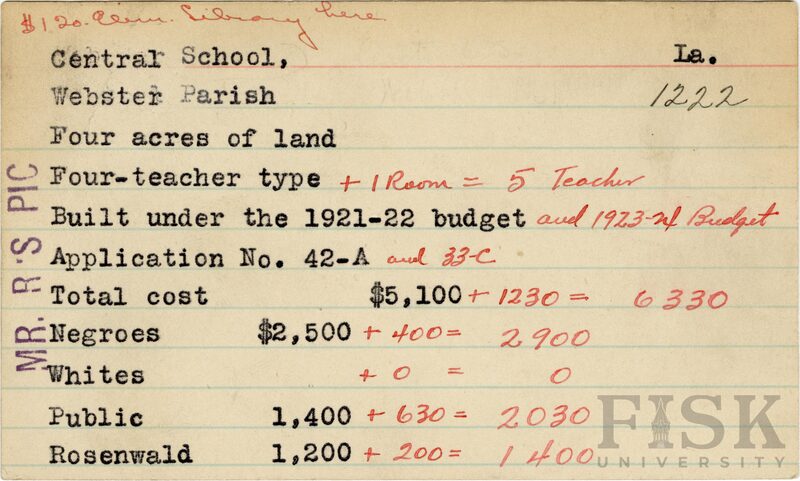 $120. Elem. Library here
Central School, La.
Webster Parish 1222
Four acres of land
Four-teacher type + 1 Room = 5 Teacher
Built under the 1921-22 budget and 1923-24 Budget
Application No. 42-A and 33-C
Total cost $5,100 + 1230 = 6330
Negroes $2,500 + 400 = 2900
Whites + 0 = 0
Public 1,400 + 630 = 2030
Rosenwald 1,200 + 200 = 1400
MR. R'S PIC
FISK
UNIVERSITY